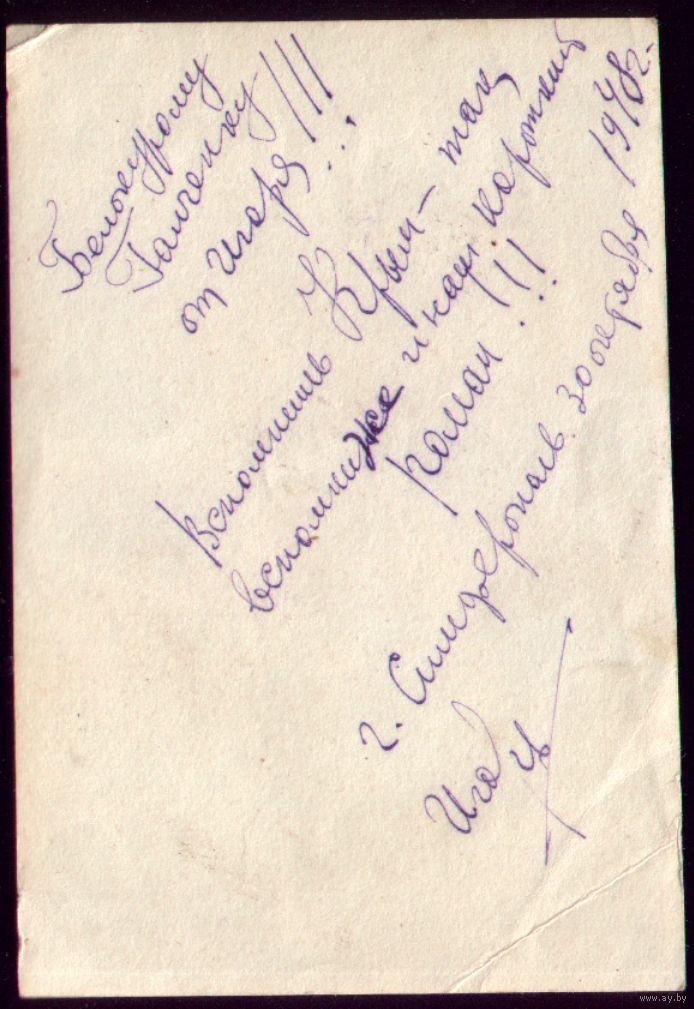 Белокурому
Галченку!!!
от Игоря...
Вспомнишь Крым – так
вспомни же и наш короткий
роман!!!
г. Симферополь. 30 октября 1948г.
www.ay.by